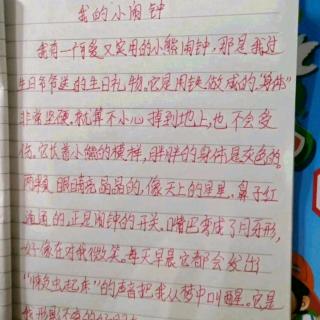 我的小闹钟
我有一个可爱又实用的小熊闹钟，那是我过
生日爷爷送的生日礼物。它是用铁做成的，"身体"
非常坚硬。就算不小心掉到地上，也不会受
伤。它长着小熊的模样，胖胖的身体是灰色的。
两只眼睛亮晶晶的，像天上的星星。鼻子红
通通的，正是闹钟的开关。嘴巴变成了月牙形，
好像在对我微笑。每天早晨它都会发出
"快起来"的声音把我从梦中叫醒。它是
我形影不离的